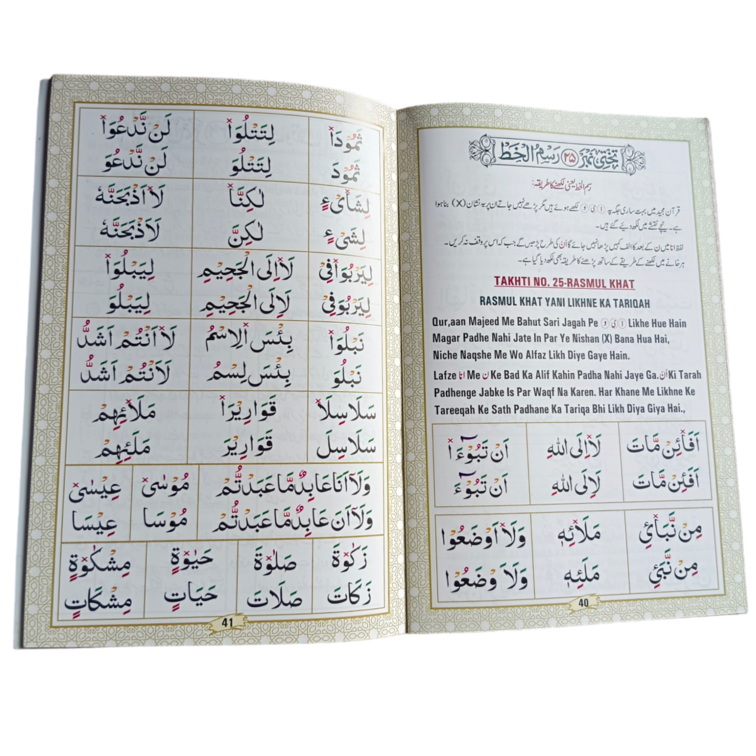 تختی نمبر ۲۵ رَسمُ الْخَطْ
رسم الخط یعنی لکھنے کا طریقہ:
قرآن مجید میں بہت ساری جگہ پہ ا ی و لکھے ہوئے ہیں مگر پڑھے نہیں جاتے ان پر یہ نشان (X) بنا ہوا
ہے۔ نیچے نقشے میں وہ لکھ دیے گئے ہیں۔
لفظ انا میں ن کے بعد کا الف کہیں پڑھا نہیں جائے گا ان کی طرح پڑھیں گے جب کہ اس پر وقف نہ کریں۔
ہر خانے میں لکھنے کے طریقے کے ساتھ پڑھنے کا طریقہ بھی لکھ دیا گیا ہے۔
TAKHTI NO. 25-RASMUL KHAT
RASMUL KHAT YANI LIKHNE KA TARIQAH
Qur,aan Majeed Me Bahut Sari Jagah Pe ا ی و Likhe Hue Hain
Magar Padhe Nahi Jate In Par Ye Nishan (X) Bana Hua Hai,
Niche Naqshe Me Wo Alfaz Likh Diye Gaye Hain.
Lafze انا Me ن Ke Bad Ka Alif Kahin Padha Nahi Jaye Ga. ان Ki Tarah
Padhenge Jabke Is Par Waqf Na Karen. Har Khane Me Likhne Ke
Tareeqah Ke Sath Padhane Ka Tariqa Bhi Likh Diya Giya Hai.,
اَفَا۟ئِنْ مَّاتَ لَا۟اِلَى اللهِ اَنْ تَبُوْٓءَا۟
اَفَئِنْ مَّاتَ لَاِلَى اللهِ اَنْ تَبُوْٓءَ
مِنْ نَّبَإِی۟ مَلَا۟ئِهٖ وَلَا۟اَوْضَعُوْا
مِنْ نَّبَئِ مَلَئِهٖ وَلَاَ وْضَعُوْا
40
ثَمُوْدَا۟ لِتَتْلُوَا۟ لَنْ نَّدْعُوَا۟
ثَمُوْدَ لِتَتْلُوَ لَنْ نَّدْعُوَ
لِشَا۟یْءٍ لٰكِنَّا۟ لَا۟اَذْبَحَنَّهٗ
لِشَیْءٍ لٰكِنَّ لَاَذْبَحَنَّهٗ
لِيَرْبُوَا۟فِیْ لَا۟اِلَى الْجَحِيْمِ لِيَبْلُوَا۟
لِيَرْبُوَفِیْ لَاِلَى الْجَحِيْمِ لِيَبْلُوَ
نَبْلُوَا۟ بِئْسَ الِاسْمُ لَا۟اَنْتُمْ اَشَدُّ
نَبْلُوَ بِئْسَ لِسْمُ لَاَنْتُمْ اَشَدُّ
سَلَاسِلَا۟ قَوَارِيْرَا۟ مَلَا۟ئِهِمْ
سَلَاسِلَ قَوَارِيْرَ مَلَئِهِمْ
وَلَآ اَنَا۟عَابِدٌ مَّا عَبَدْتُّمْ مُوْسٰى عِيْسٰى
وَلَآ اَنَ عَابِدٌ مَّا عَبَدْتُّمْ مُوْسَا عِيْسَا
زَكٰوةَ صَلٰوةَ حَيٰوةٍ مِشْكٰوةٍ
زَكَاتَ صَلَاتَ حَيَاتٍ مِشْكَاتٍ
41